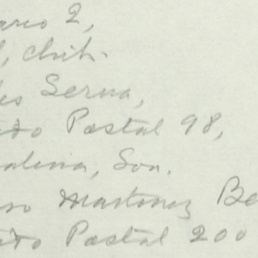 ario 2,
, Chih.
Serna,
to Postal 98,
alina, Son.
Martinez Be
to Postal 200